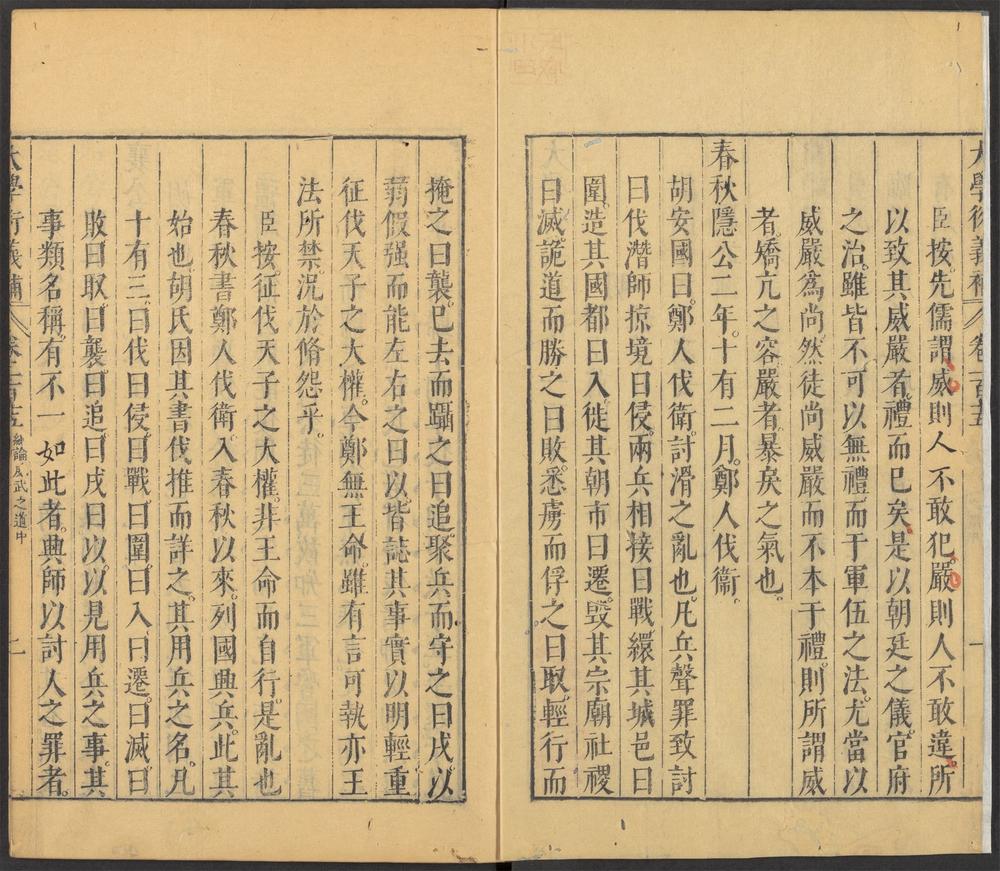 大學衍義補 卷一百十五 一
臣按先儒謂威則人不敢犯。嚴則人不敢違。所
以致其威嚴者。禮而已矣。是以朝廷之儀。官府
之治。雖皆不可以無禮。而于軍伍之法。尤當以
威嚴爲尚。然徒尚威嚴而不本于禮。則所謂威
者。矯亢之容。嚴者。暴戾之氣也。
春秋隱公二年。十有二月。鄭人伐衞。
胡安國曰。鄭人伐衞。討滑之亂也。凡兵聲罪致討
曰伐。潛師掠境曰侵。兩兵相接曰戰。繯其城邑曰
圍。造其國都曰入。徙其朝市曰遷。毀其宗廟社稷
曰滅。詭道而勝之曰敗。悉虜而俘之曰取。輕行而
掩之曰襲。已去而躡之曰追。聚兵而守之曰戍。以
弱假强而能左右之曰以。皆誌其事實。以明輕重
征伐天子之大權。今鄭無王命。雖有言可執。亦王
法所禁。況於脩怨乎。
臣按征伐天子之大權。非王命而自行。是亂也
春秋書鄭人伐衞。入春秋以來。列國興兵。此其
始也。胡氏因其書伐。推而詳之。其用兵之名。凡
十有三。曰伐曰侵。曰戰。曰圍。曰入。曰遷。曰滅。曰
敗。曰取。曰襲。曰追。曰戍。曰以。以見用兵之事。其
事類名稱。有不一如此者。興師以討人之罪者。
大學衍義補 卷一百十五 總論威武之道中 二